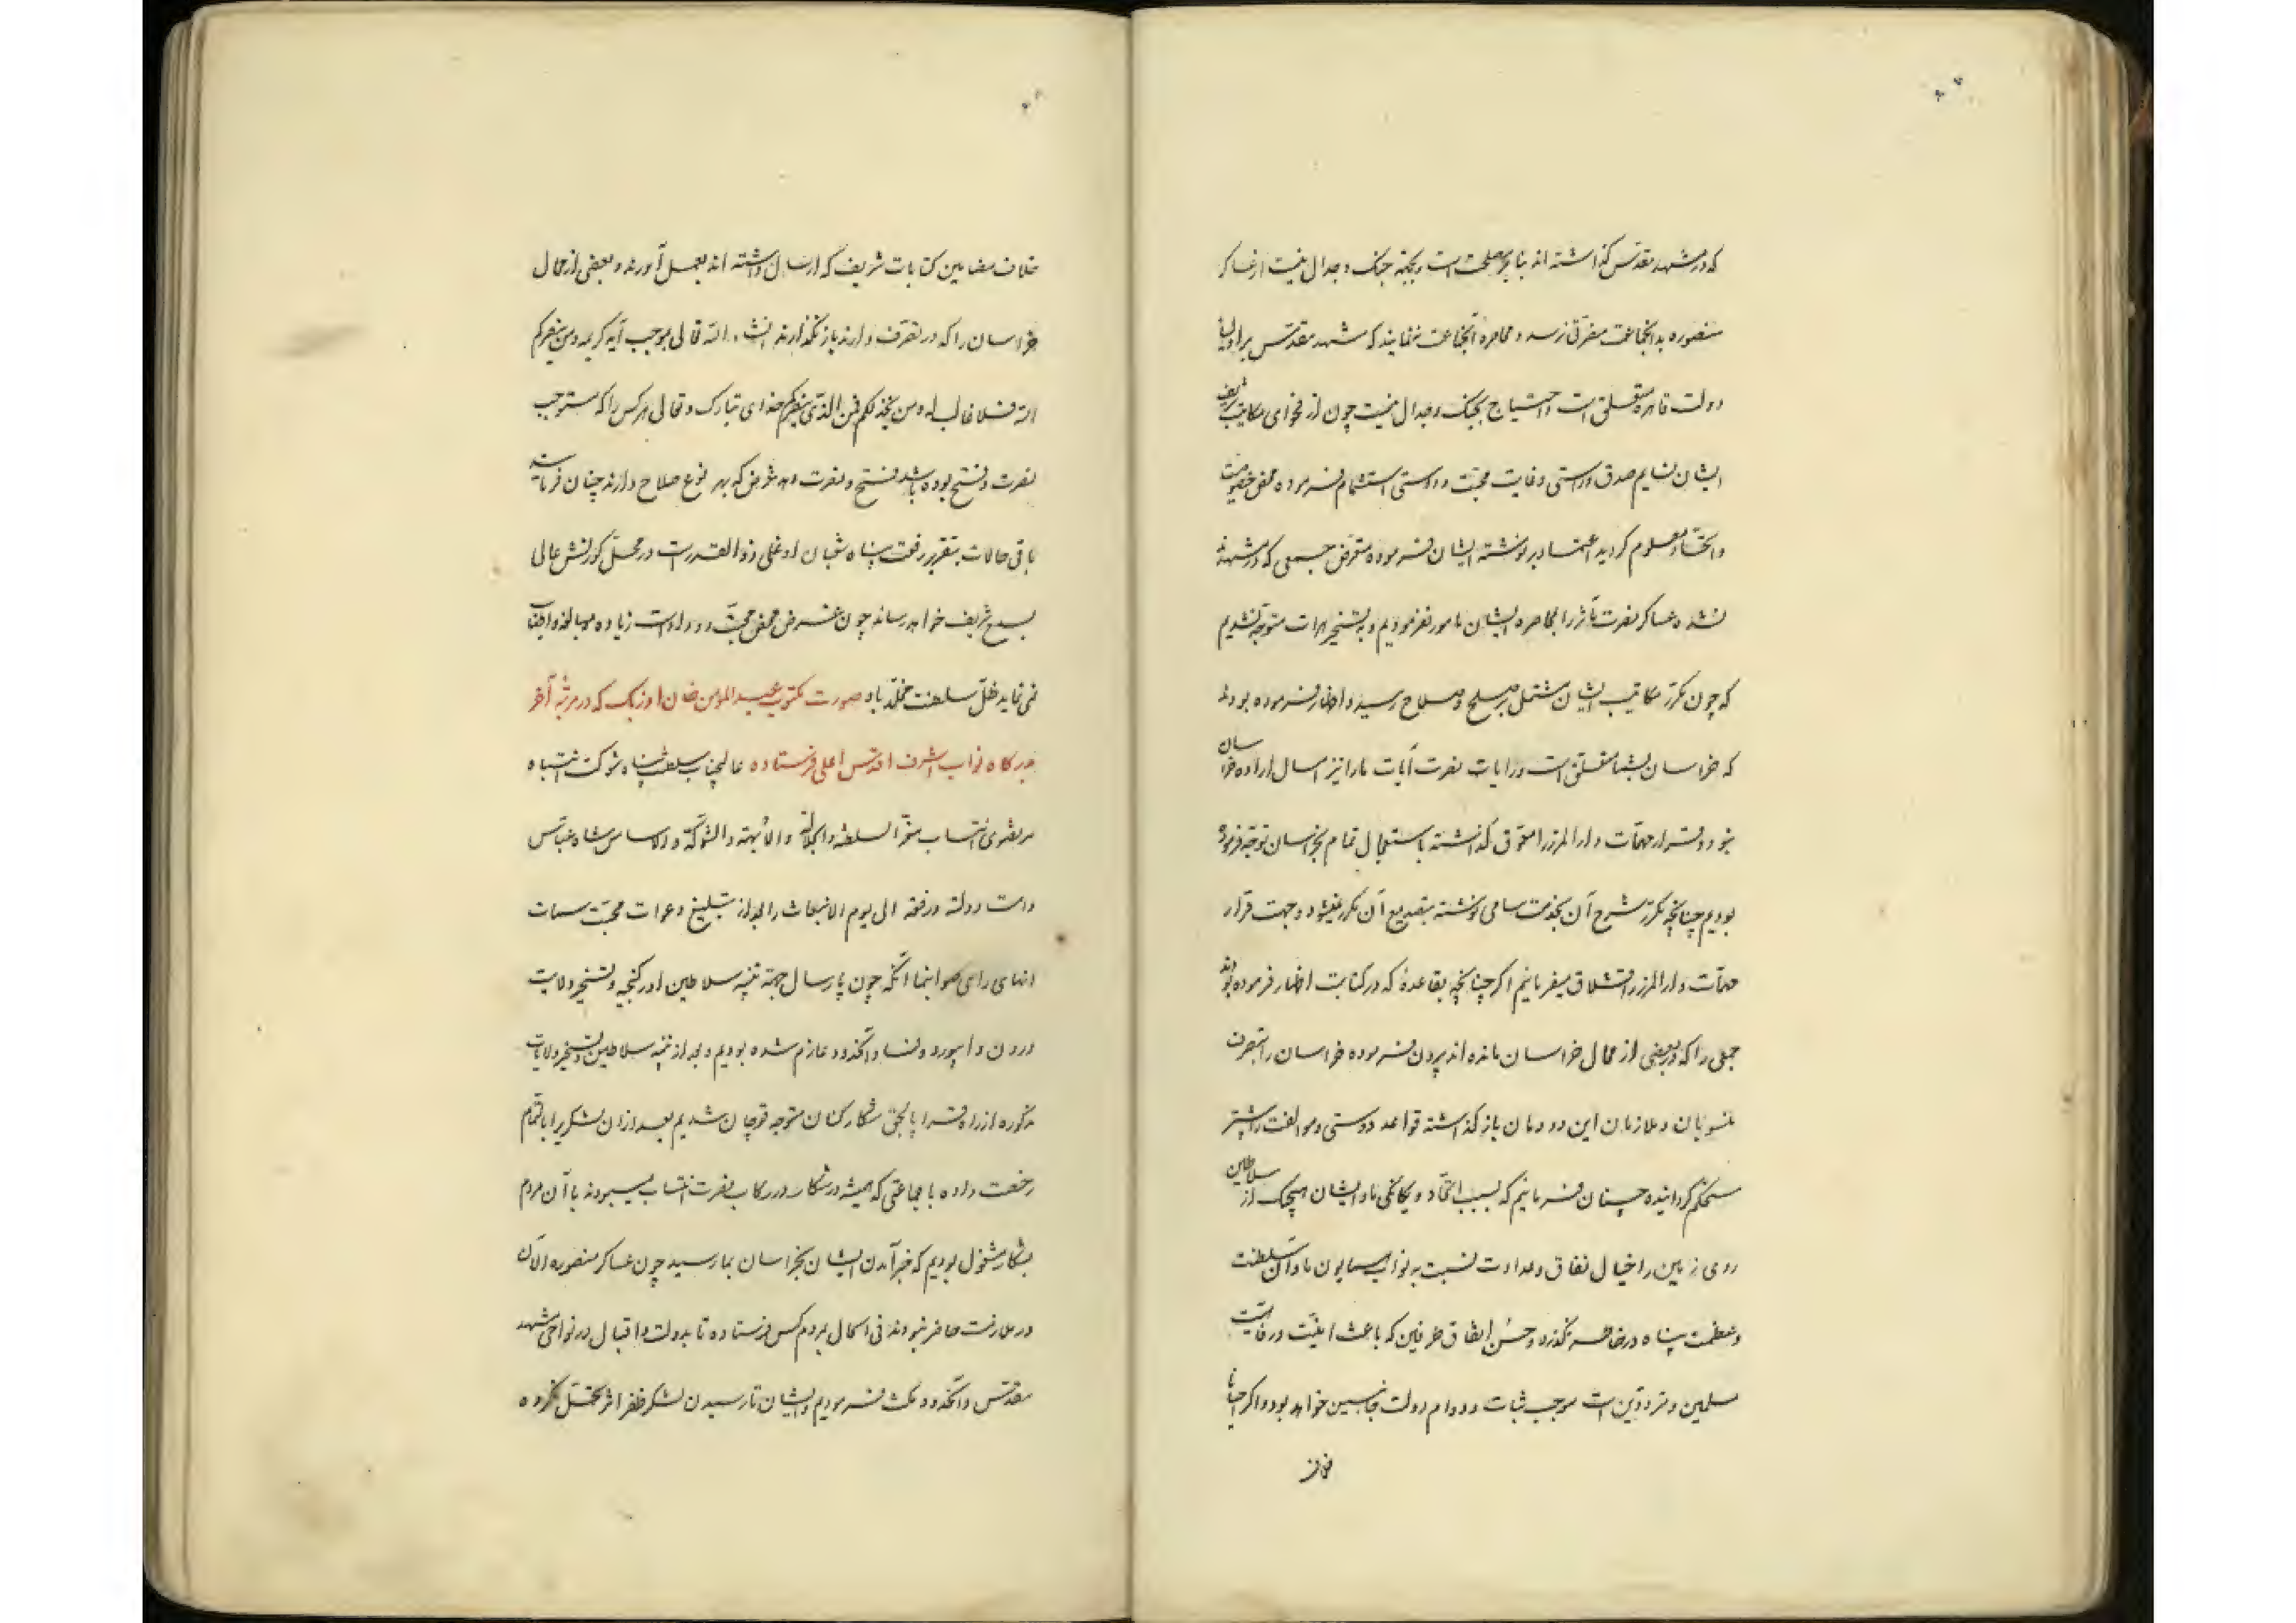 که در مشهد مقدس گذاشته اند بنابر مصلحت است و بجهة جنک و جدال نیست از عساکر
منصوره بدانجماعت مضرّتی نرسد و محاصره انجماعت ننمایند که مشهد مقدس براولیا
دولت قاهره متعلق است و احتیاج بجنک و جدال نیست چون از فحوای مکاتیب شریف
ایشان نسایم صدق و راستی و غایت محبّت و دوستی استشمام فرموده محض خصوصیت
و اتحاد معلوم کردید اعتماد بر نوشته ایشان فرموده متعرّض جمعی که در مشهدند
نشده عساکر نصرت مآثر را بمحاصره ایشان مامور نفرمودیم و به تسخیر هرات متوجه نشدیم
که چون مکرّر مکاتیب ایشان مشتمل بر صلح و صلاح رسید و اظهار فرموده بودند
که خراسان بشما متعلق است و رایات نصرت آیات ما را نیز امسال اراده خراسان
نبود و قرار مهمّات دارالمرز را معوّق گذاشته باستعجال تمام بخراسان توجّه فرموده
بودیم چنانچه مکرّر شرح آن بخدمت سامی نوشته بتصدیع آن مکرّر نمیشود و جهت قرار
مهمّات دارالمرز قشلاق میفرمائیم اکر چنانچه بقاعدهٔ که در کتابت اظهار فرموده بودند
جمعی را که در بعضی از محال خراسان مانده اند بیرون فرموده خراسان را بتصرف
منسوبان و ملازمان این دودمان باز گذاشته قواعد دوستی و موالفت را بیشتر
مستحکم کردانیده چنان فرمائیم که بسبب اتّحاد و یکانکی ما و ایشان هیچیک از سلاطین
روی زمین را خیال نفاق و عداوت نسبت به نواب همایون ما و آن سلطنت
و عظمت پناه در خاطر نگذرد و حسن اتفاق طرفین که باعث امنیّت و رفاهیت
مسلمین و متردّدین است موجب ثبات و دوام دولت جانبین خواهد بود و اکر احیانا
خلاف
خلاف مضامین کتابات شریف که ارسال داشته اند بعمل آورند و بعضی از محال
خراسان را که در تصرّف دارند باز نگذارند انشاء الله تعالی بموجب آیه کریمه و من ینصرکم
الله فلا غالب له و من یخذلکم فمن الذی ینصرکم خدای تبارک و تعالی هر کس را که مستوجب
نصرت و فتح بوده باشد فتح و نصرت دهد غرض که بهر نوع صلاح دارند چنان فرمایند
باقی حالات بتقریر رفعت پناه شعبان اوغلی ذوالقدر است در محلّ کورنش عالی
بسمع شریف خواهد رساند چون غرض محض محبّت و وداد است زیاده مبالغه و اطناب
نمی نماید ظلّ سلطنت مخلّد باد صورت مکتوب عبدالمؤمن خان اوزبک که در مرتبهٔ آخر
بدرکاه نواب اشرف اقدس اعلی فرستاده عالیجناب سلطنت پناه شوکت انتباه
مرتضوی انتساب معزّ السلطنه و الجلالة و الأبهة و الشوکة و الاساس شاه عباس
دامت دولته و رفعته الی یوم الانبعاث را بعد از تبلیغ دعوات محبّت سمات
انهای رای صوابنما آنکه چون پارسال جهة تنبیه سلاطین اورکنجیه و تسخیر ولایت
درون و ابیورد و نسا و آنحدود عازم شده بودیم و بعد از تنبیه سلاطین و تسخیر ولایات
مذکوره از راه قرا پالجق شکار کنان متوجه قوچان شدیم بعد از آن لشکری را بالتمام
رخصت داده با جماعتی که همیشه در شکار در رکاب نصرت انتساب میبودند با آن مردم
بشکار مشغول بودیم که خبر آمدن ایشان بخراسان بما رسید چون عساکر منصوره الآن
در ملازمت حاضر نبودند فی الحال بمردم کس فرستاده تا بدولت و اقبال در نواحی مشهد
مقدس و آنحدود مکث فرمودیم و ایشان تا رسیدن لشکر ظفر اثر تحمّل نکرده